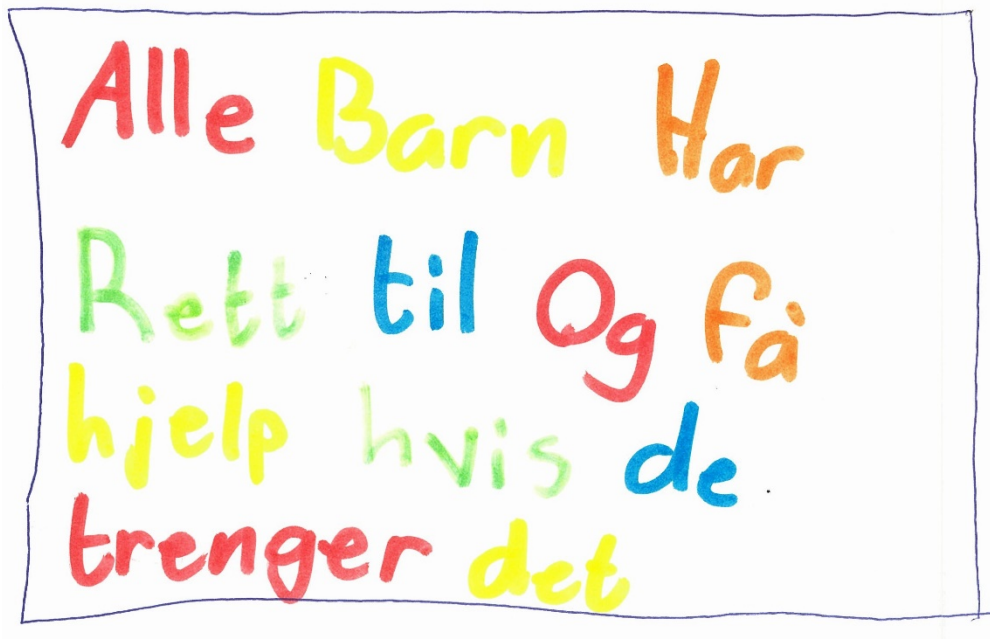 Alle Barn Har
Rett til Og få
hjelp hvis de
trenger det